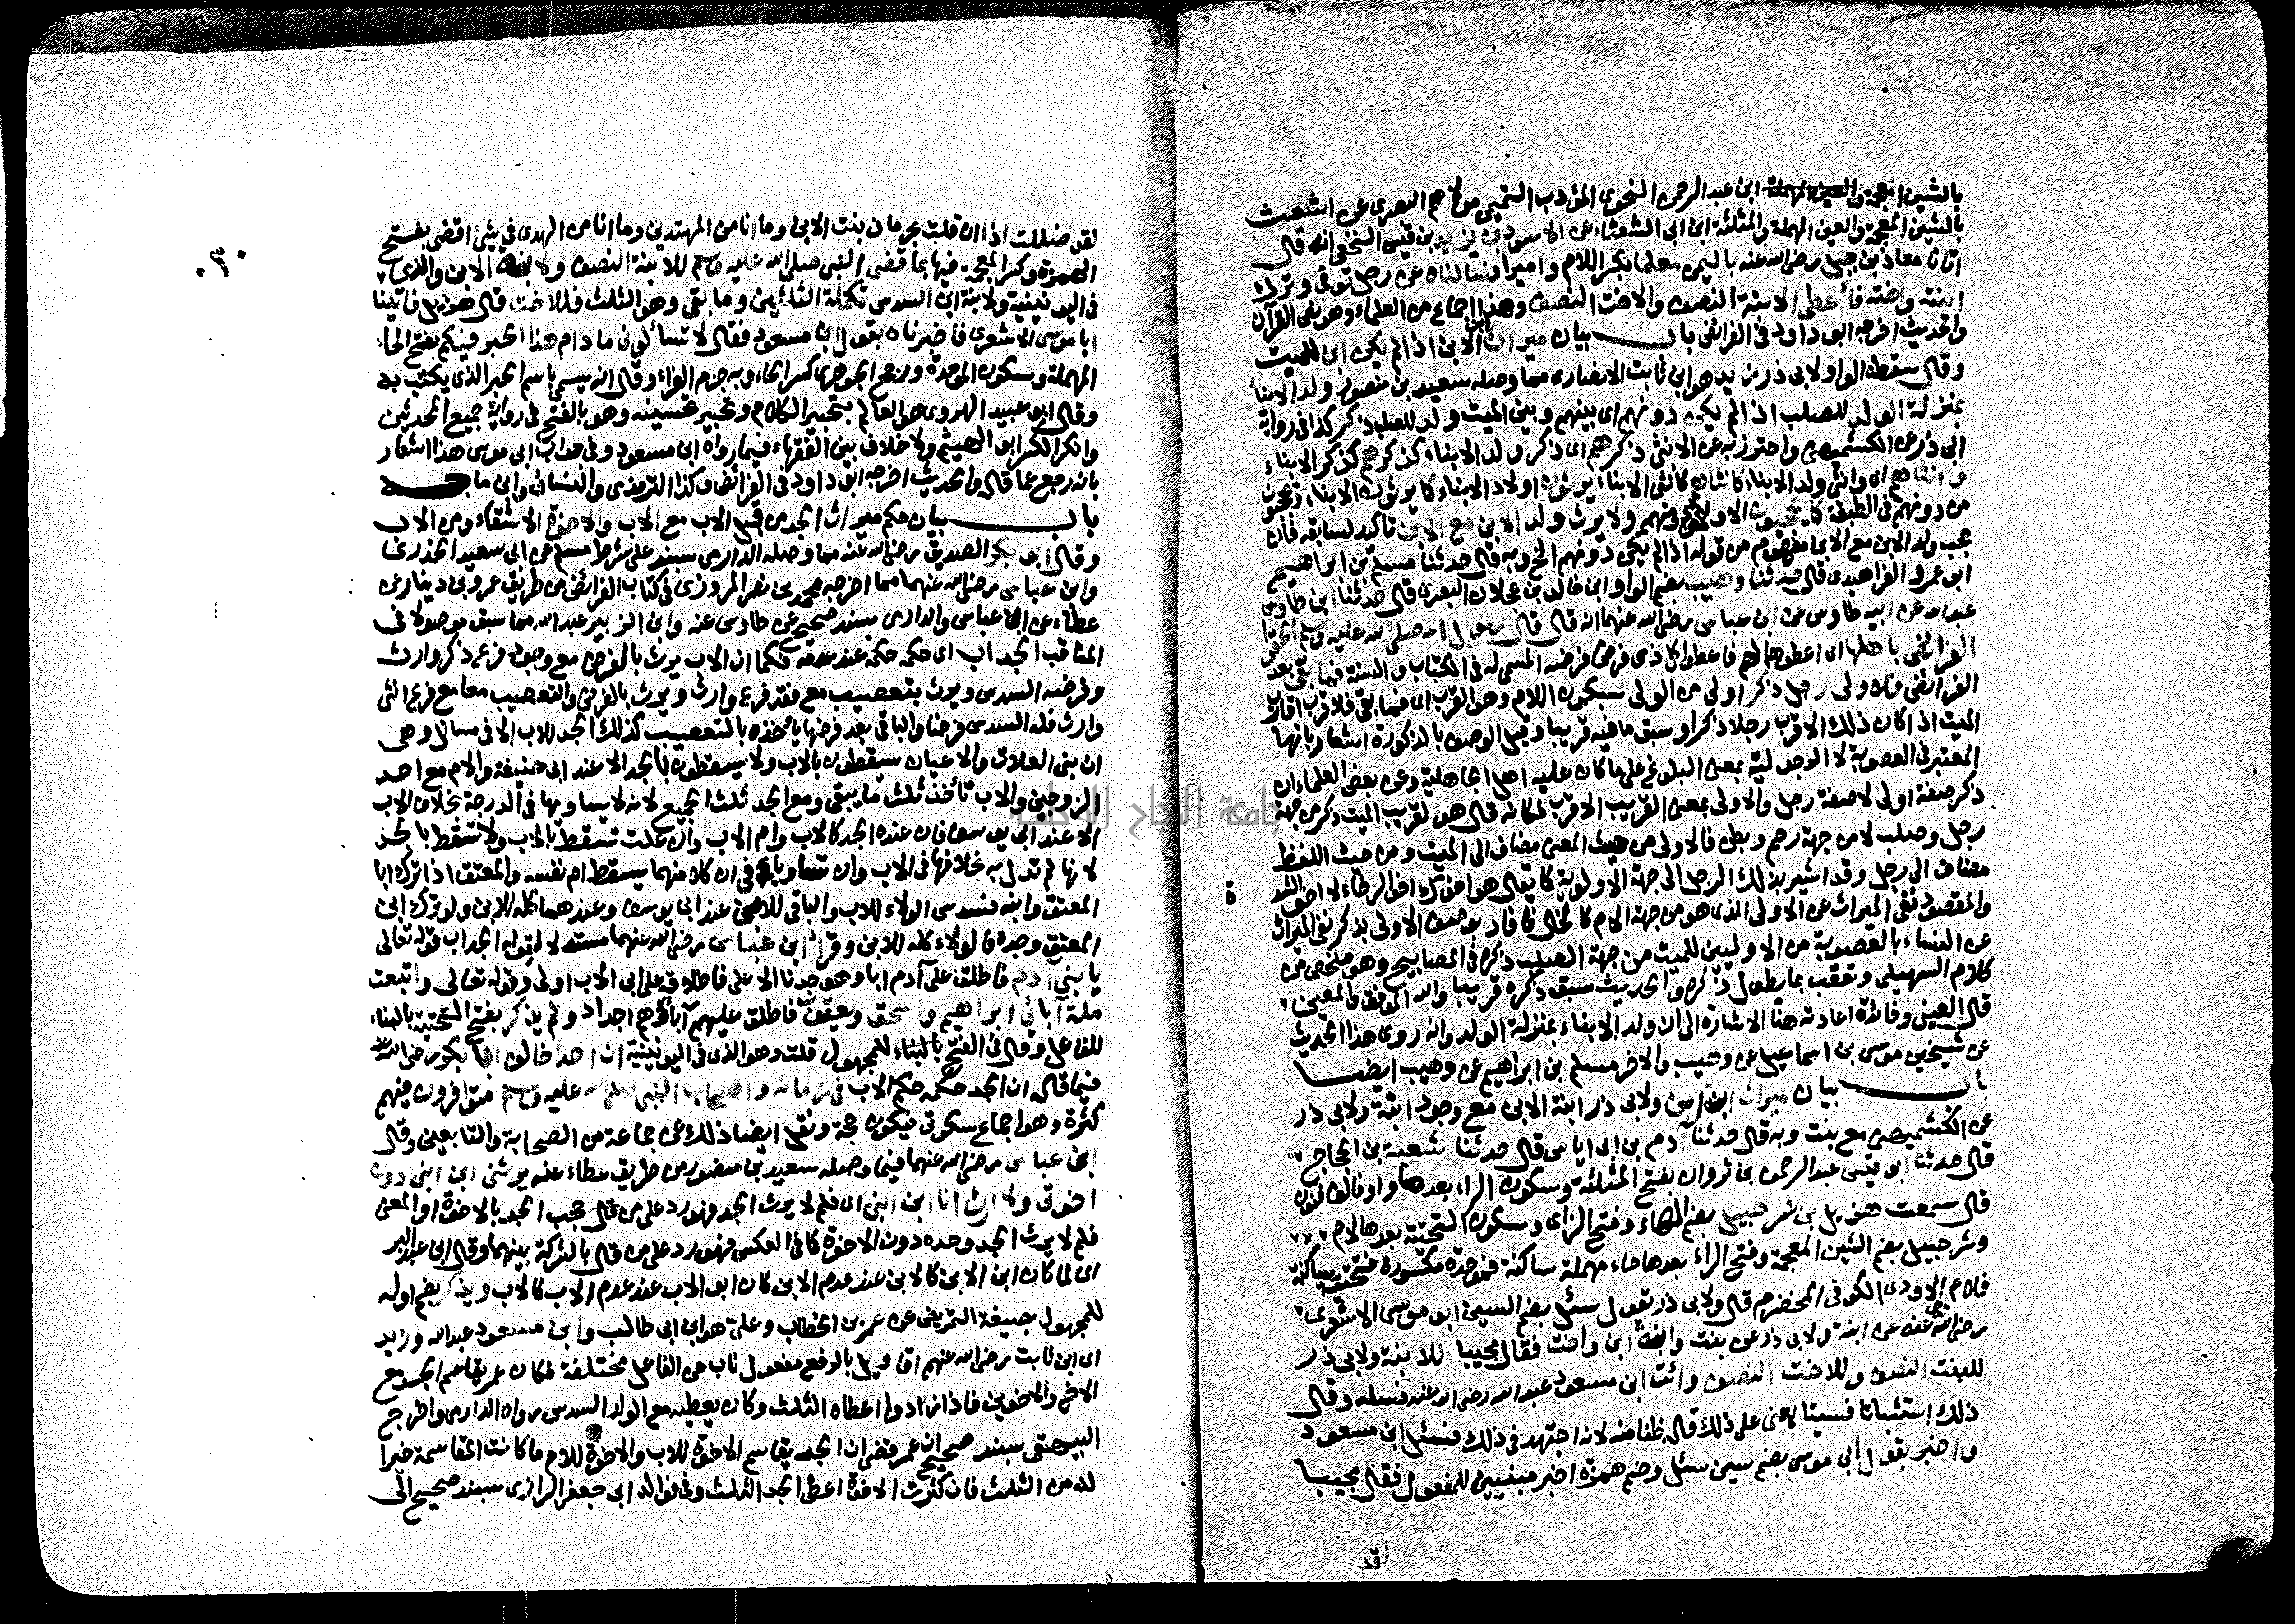 بالشين المعجمة والعين المهملة ابن عبد الرحمن النحوي المؤدب التميمي مولاهم البصري عن اشعث
بالشين المعجمة والعين المهملة والمثلثة ابن ابي الشعثاء عن الاسود بن يزيد بن قيس النخعي انه قال
اتانا معاذ بن جبل رضى الله عنه باليمن معلما بكسر اللام واميرا فسألناه عن رجل توفى وترك
ابنته واخته فأعطى الابنة النصف والاخت النصف وهذا اجماع من العلماء وهو نص القرآن
والحديث اخرجه ابو داود في الفرائض باب بيان ميراث ابن الابن اذا لم يكن ابن للميت
وقال سقطت الواو لابى ذر زيد هو ابن ثابت الانصارى مما وصله سعيد بن منصور ولد الابناء
بمنزلة الولد للصلب اذا لم يكن دونهم اى بينهم وبين الميت ولد للصلب ذكر كذا في رواية
ابى ذر عن الكشميهني واحترز به عن الانثى ذكرهم اى ذكر ولد الابناء كذكرهم كذكر الابناء
وانثاهم اى وانثى ولد الابناء كأنثاهم كأنثى الابناء يرثون اولاد الابناء كما يرثون الابناء ويحجبون
من دونهم في الطبقة كما يحجبون الاولاد من دونهم ولا يرث ولد الابن مع الابن تأكيد لسابقه فأن
حجب ولد الابن مع الابن مفهوم من قوله اذا لم يكن دونهم الخ وبه قال حدثنا مسلم بن ابراهيم
ابو عمرو الفراهيدى قال حدثنا وهيب بضم الواو ابن خالد بن عجلان البصرى قال حدثنا ابن طاوس
عبد الله عن ابيه طاوس عن ابن عباس رضى الله عنهما انه قال قال رسول الله صلى الله عليه وسلم الحقوا
الفرائض باهلها اى اعطوها لهم فاعطوا كل ذى فرض فرضه المسمى له في الكتاب والسنة فما بقى بعد
الفرائض فلاولى رجل ذكر اولى من الولى بسكون اللام وهو القرب اى فما بقى فلاقرب اقارب
الميت اذا كان ذلك الاقرب رجلا ذكرا وسبق ما فيه قريبا وقيل الوصف بالذكورة اشعار بانها
المعتبر في العصوبة لا الرجولية بمعنى البلوغ على ما كان عليه اهل الجاهلية وعن بعض العلماء ان
ذكر صفة اولى لا صفة رجل والاولى بمعنى القريب الاقرب لكانه قال هو لقريب الميت ذكر من جهة
رجل وصلب لا من جهة رحم وبطن فالاولى من حيث المعنى مضاف الى الميت ومن حيث اللفظ
مضاف الى رجل وقد اشير بذلك الرجل الى جهة الاولوية كما يقال هو اخوك اخو الرخاء لا اخو الشدة
والمقصود نفى الميراث عن الاولى الذى هو من جهة الام كالخال فافاد بوصف الاولى بذكر نفى الميراث
عن النساء بالعصوبة من الاوليين للميت من جهة الصلب ذكره في المصابيح وهو ملخص من
كلام السهيلى وتعقب بما يطول ذكره والحديث سبق ذكره قريبا والله الموفق والمعين
قال العينى وفائدة اعادته هنا الاشارة الى ان ولد الابناء بمنزلة الولد وانه روى هذا الحديث
عن شيخين موسى بن اسماعيل عن وهيب والآخر مسلم بن ابراهيم عن وهيب ايضا
باب بيان ميراث ابنة ابن ولابى ذر ابنة الابن مع وجود ابنة ولابى ذر
عن الكشميهني مع بنت وبه قال حدثنا آدم بن ابى اياس قال حدثنا شعبة بن الحجاج
قال حدثنا ابو قيس عبد الرحمن بن ثروان بفتح المثلثة وسكون الراء بعدها واو فالف فنون
قال سمعت هزيل بن شرحبيل بضم الهاء وفتح الزاى وسكون التحتية بعدها لام
وشرحبيل بضم الشين المعجمة وفتح الراء بعدها حاء مهملة ساكنة فموحدة مكسورة فتحتية ساكنة
فلام الاودى الكوفى المخضرم قال ولابى ذر يقول سئل بضم السين ابو موسى الاشعرى
رضى الله عنه عن ابنة ولابى ذر عن بنت وابنة ابن واخت فقال مجيبا للابنة ولابى ذر
للبنت النصف وللاخت النصف وائت ابن مسعود عبد الله رضى الله عنه فسله وقال
ذلك استثباتا فسيتابعنى على ذلك قاله ظنا منه لانه اجتهد في ذلك فسئل ابن مسعود
واخبر بقول ابى موسى بضم سين سئل وضم همزة اخبر مبنيين للمفعول فقال مجيبا
لقد
٠٣٠
لقد ضللت اذا ان قلت بحرمان بنت الابن وما انا من المهتدين وما انا من الهدى في شئ اقضى بفتح
الهمزة وكسر المعجمة فيها بما قضى النبى صلى الله عليه وسلم للابنة النصف ولابنة الابن والذى
في اليونينية ولابنة ابن السدس تكملة الثلثين وما بقى وهو الثلث فللاخت قال هزيل فاتينا
ابا موسى الاشعرى فاخبرناه بقول ابن مسعود فقال لا تسألونى ما دام هذا الحبر فيكم بفتح الحاء
المهملة وسكون الموحدة ورجح الجوهرى كسر الحاء وبه جزم الفراء وقال انه يسمى باسم الحبر الذى يكتب به
وقال ابو عبيد الهروى هو العالم بتحبير الكلام وتحبير تحسينه وهو بالفتح في رواية جميع المحدثين
وانكر الكسر ابو الهيثم ولا خلاف بين الفقهاء فيما رواه ابن مسعود وفى جواب ابى موسى هذا اشعار
بانه رجع عما قاله والحديث اخرجه ابو داود في الفرائض وكذا الترمذى والنسائى وابن ماجه
باب بيان حكم ميراث الجد من قبل الاب مع الاب والاخوة الاشقاء ومن الاب
وقال ابو بكر الصديق رضى الله عنه مما وصله الدارمى بسند على شرط مسلم عن ابى سعيد الخدرى
وابن عباس رضى الله عنهما مما اخرجه محمد بن نصر المروزى في كتاب الفرائض من طريق عمرو بن دينار عن
عطاء عن ابن عباس والدارمى بسند صحيح عن طاوس عنه وابن الزبير عبد الله مما سبق موصولا في
المناقب الجد اب اى حكمه حكمه عند عدمه فكما ان الاب يرث بالفرض مع وجود فرع ذكر وارث
وفرضه السدس ويرث بتعصيب مع فقد فرع وارث ويرث بالفرض والتعصيب معا مع فرع انثى
وارث فله السدس فرضا والباقى بعد فرضها يأخذه بالتعصيب كذلك الجد للاب الا في مسائل وهى
ان بنى العلات والاعيان يسقطون بالاب ولا يسقطون بالجد الا عند ابى حنيفة والام مع احد
الزوجين والاب تأخذ ثلث ما يبقى ومع الجد ثلث الجميع لانه لا يساويها في الدرجة بخلاف الاب
الا عند ابى يوسف فان عنده الجد كالاب وام الاب وان علت تسقط بالاب ولا تسقط بالجد
لانها لم تدل به بخلافها في الاب وان تساويا في ان كلا منهما يسقط ام نفسه والمعتق اذا ترك ابا
المعتق وابنه فسدس الولاء للاب والباقى للابن عند ابى يوسف وعندهما كله للابن ولو ترك ابن
المعتق وجده فالولاء كله للابن وقرأ ابن عباس رضى الله عنهما مستدلا لقوله الجد اب قوله تعالى
يا بنى آدم فاطلق على آدم ابا وهو جدنا الاعلى فاطلاقه على ابى الاب اولى وقوله تعالى واتبعت
ملة آبائى ابراهيم واسحق ويعقوب فاطلق عليهم آباء وهم اجداد ولم يذكر بفتح التحتية بالبناء
للفاعل وقال في الفتح بالبناء للمجهول قلت وهو الذى في اليونينية ان احدا خالف ابا بكر رضى الله عنه
فيما قاله ان الجد حكمه حكم الاب في زمانه واصحاب النبى صلى الله عليه وسلم متوافرون فيهم
كثرة وهو اجماع سكوتى فيكون حجة ونقل ايضا ذلك عن جماعة من الصحابة والتابعين وقال
ابن عباس رضى الله عنهما فيما وصله سعيد بن منصور من طريق عطاء عنه يرثنى ابن ابنى دون
اخوتى ولا ارث انا ابن ابنى اى فلم لا يرث الجد فهو رد على من قال بحجب الجد بالاخوة او المعنى
فلم لا يرث الجد وحده دون الاخوة كما في العكس فهو رد على من قال بالشركة بينهما وقال ابن عبد البر
اى لما كان ابن الابن كالابن عند عدم الابن كان ابو الاب عند عدم الاب كالاب ويذكر بضم اوله
للمجهول بصيغة التمريض عن عمر بن الخطاب وعلى هو ابن ابى طالب وابن مسعود عبد الله وزيد
اى ابن ثابت رضى الله عنهم اقاويل بالرفع مفعول ناب عن الفاعل مختلفة فكان عمر يقاسم الجد مع
الاخ والاخوين فاذا زادوا اعطاه الثلث وكان يعطيه مع الولد السدس رواه الدارمى واخرج
البيهقى بسند صحيح ان عمر قضى ان الجد يقاسم الاخوة للاب والاخوة للام ما كانت المقاسمة خيرا
له من الثلث فان كثرت الاخوة اعطى الجد الثلث وفى فوائد ابى جعفر الرازى بسند صحيح الى
جامعة النجاح